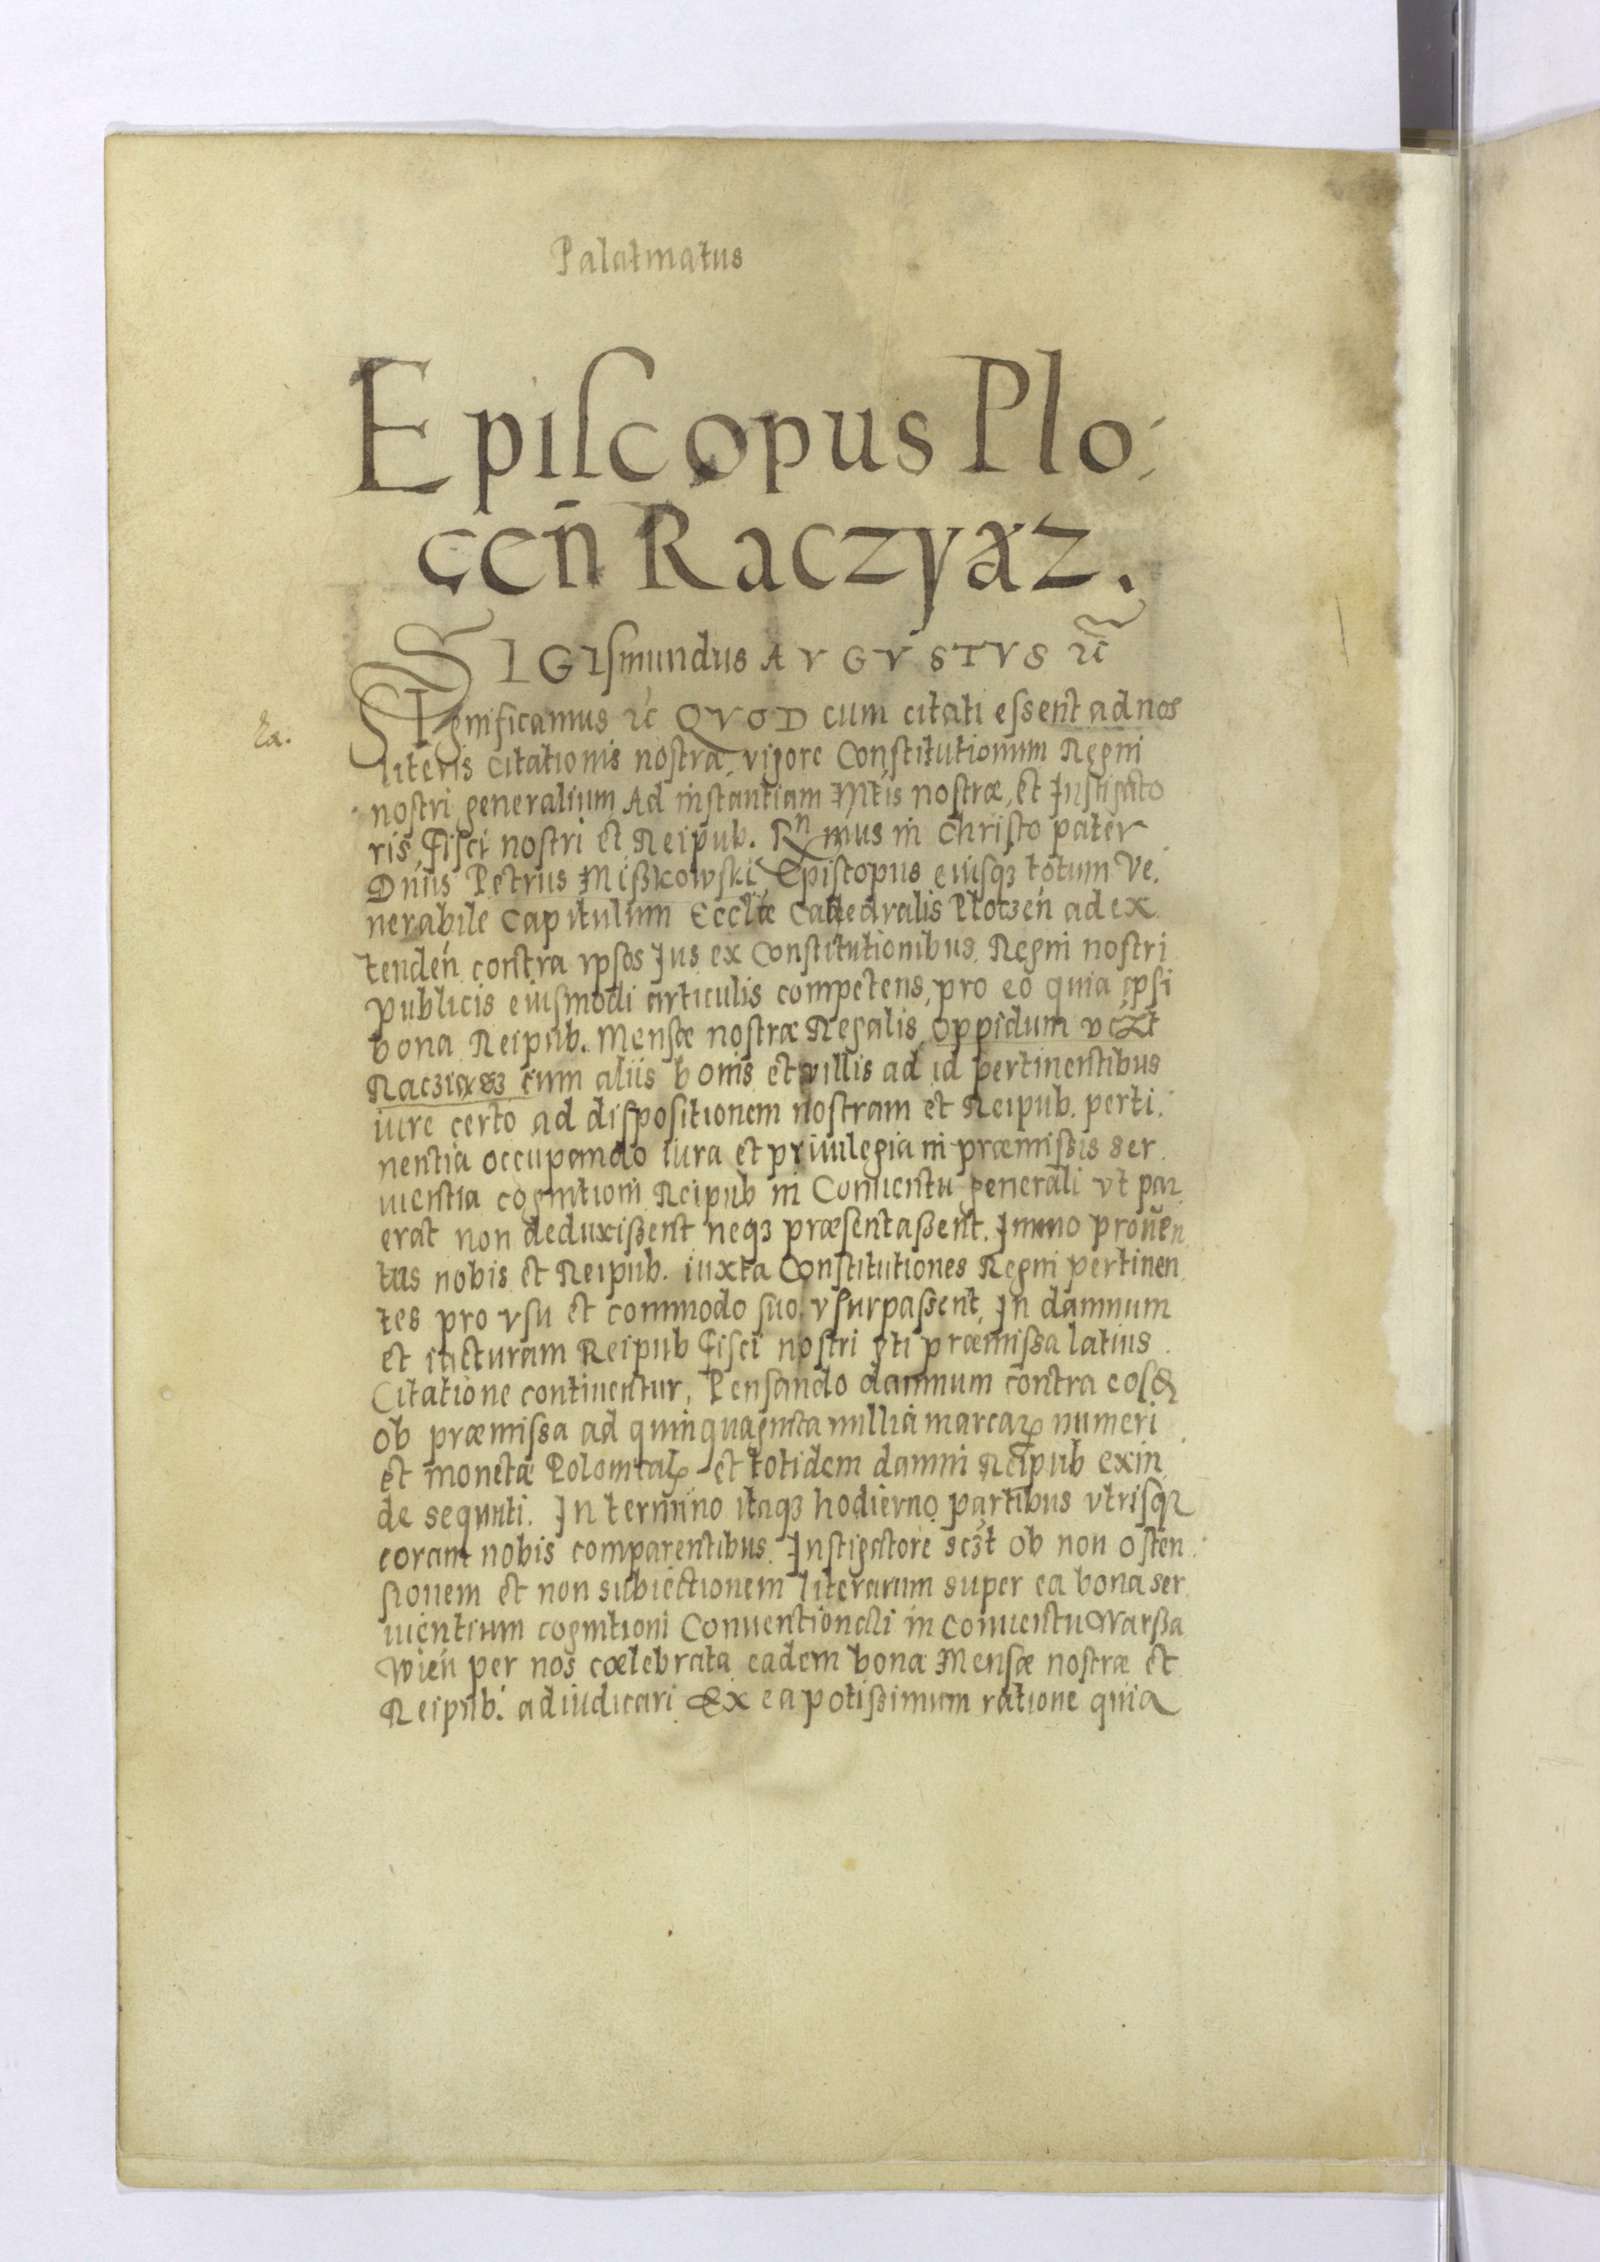 Palatinatus
Episcopus Plo:
ceñ Raczyąz.
SIGIsmundus AVGVSTVS ꝛc̃
SIgnificamus ꝛc̃ QVOD cum citati essent ad nos
literis citationis nostra, vigore Constitutionum Regni
nostri generalium Ad instantiam Mtis nostræ, et Instigato
ris, Fisci nostri et Reipub. Rnmus in Christo pater
Dnus Petrus Mißkowski, Episcopus eiusqȝ totum Ve,
nerabile Capitulum Eccliæ Cathedralis Plotzeń ad ex
tendeń contra ipsos Jus ex Constitutionibus Regni nostri
publicis eiusmodi articulis competens, pro eo quia ipsi
bona Reipub. Mensæ nostræ Regalis, oppidum vczt
Racziąz cum aliis bonis et villis ad id pertinentibus
iure certo ad dispositionem nostram et Reipub. perti.
nentia occupando iura et priuilegia in præmißis ser
uientia cognitioni Reipub in Conuentu generali vt par
erat non deduxißent neqȝ præsentaßent. Immo prouen
tus nobis et Reipub. iuxta Constitutiones Regni pertinen
tes pro vsu et commodo suo vsurpaßent, In damnum
et iacturam Reipub Fisci nostri ꝓti præmissa latius
Citatione continentur, Pensando damnum contra eosd
ob præmissa ad quinquaginta millia marcaꝝ numeri
et monetæ Polonicalꝭ et totidem damni Reipub exin
de sequuti. In termino itaqȝ hodierno partibus vtrisqȝ
coram nobis comparentibus. Instigatore sczt ob non osten
sionem et non subiectionem literarum super ea bona ser
uientium cognitioni Conuentionali in Conuentu Warßa
wień per nos cœlebrata eadem bona Mensæ nostræ et
Reipub. adiudicari Ex ea potißimum ratione quia